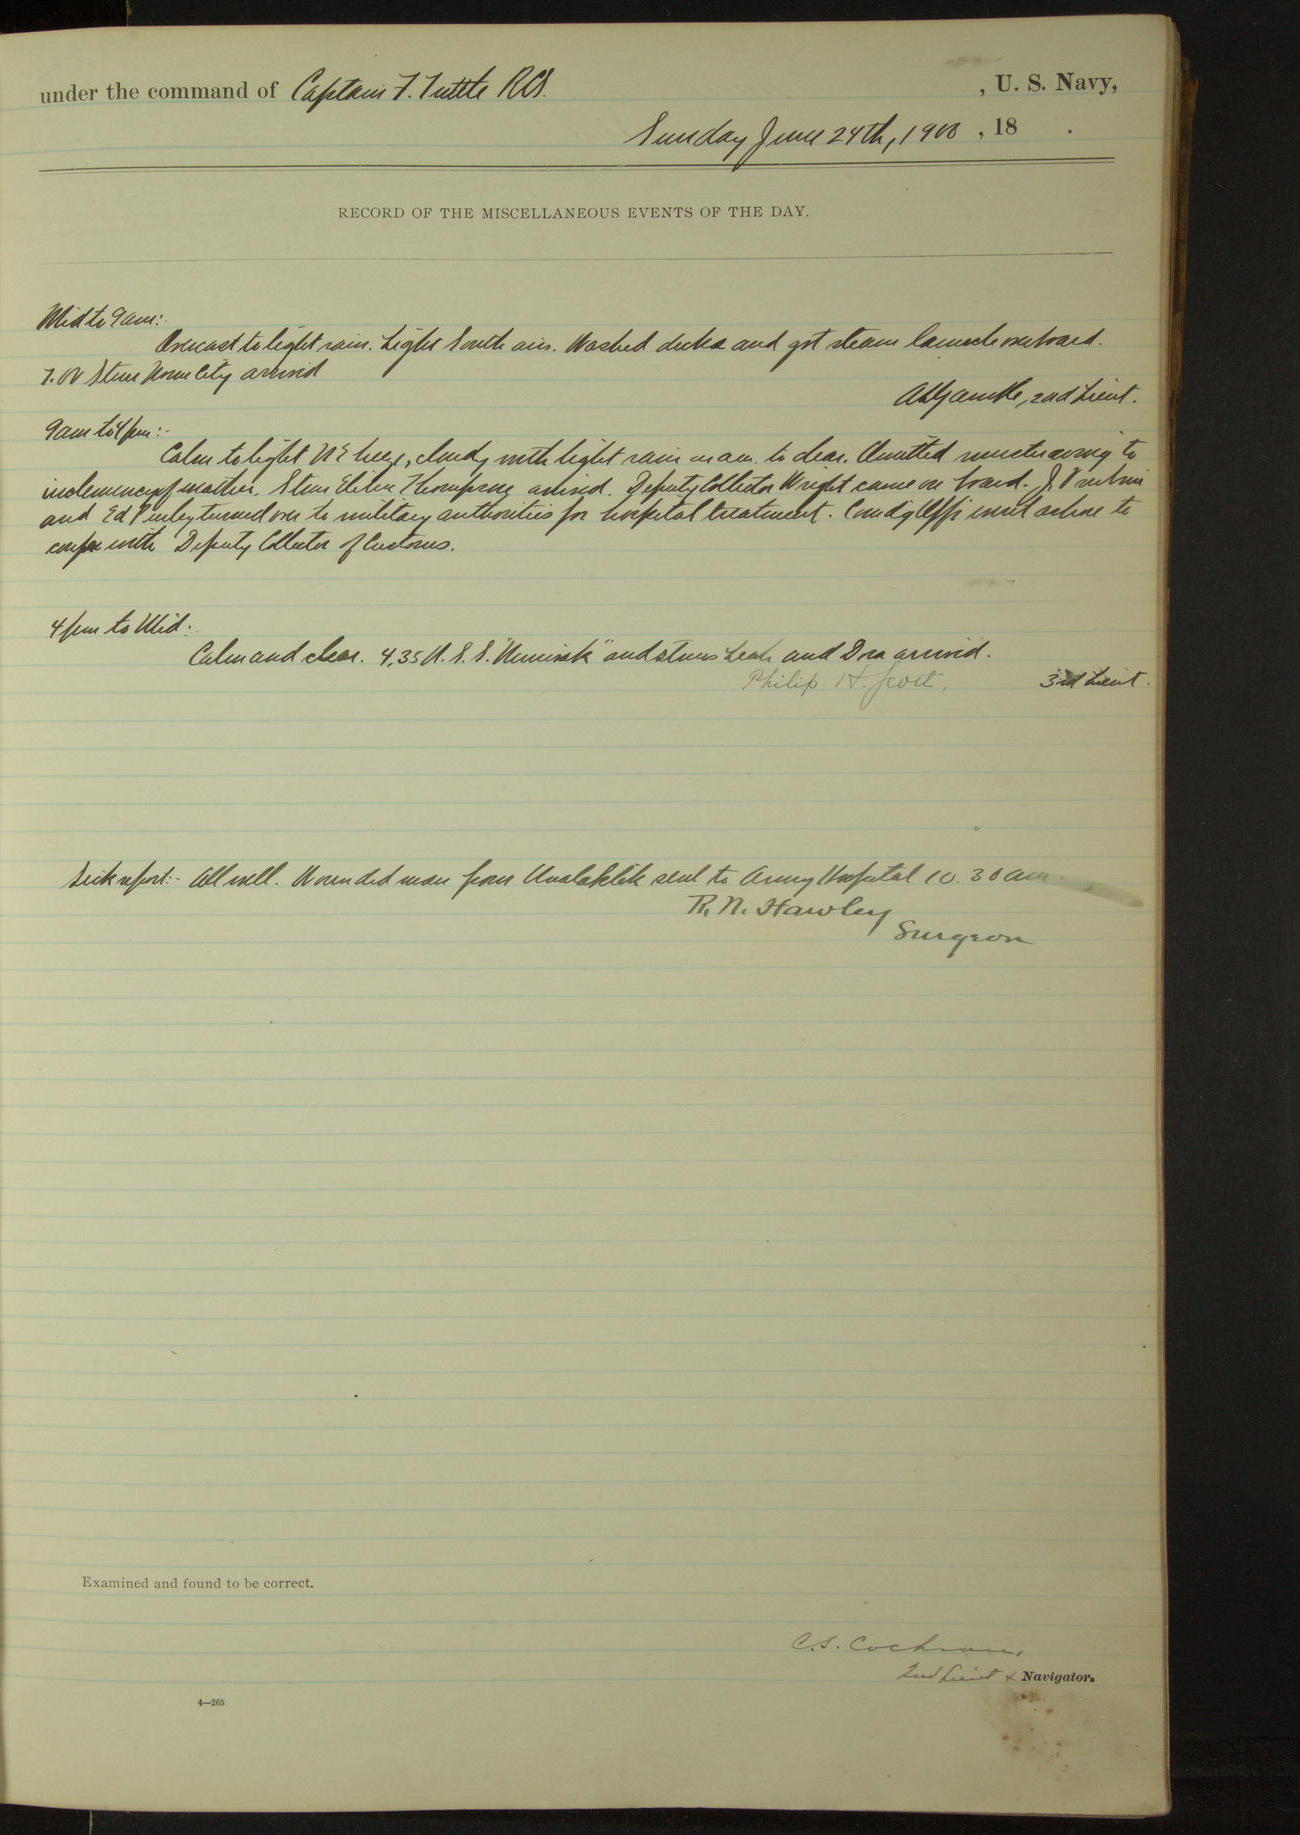 under the command of Captain F. Tuttle RCS. , U. S. Navy,
Sunday June 24th, 1900 , 18 .
RECORD OF THE MISCELLANEOUS EVENTS OF THE DAY.
Mid to 9 am:-
Overcast to light rain. Light South airs. Washed decks and got steam launch onboard.
7.00 Stmr Nome City arrived
2nd Lieut.
9 am to 4 pm:-
Calm to light N E breeze, cloudy with light rain in am. to clear. Omitted muster owing to
inclemency of weather. Stmr arrived. Deputy Collector Wright came on board. J.
and Ed turned over to military authorities for hospital treatment. Comdg Offr went ashore to
confer with Deputy Collector of Customs.
4 pm to Mid:-
Calm and clear. 4.35 U. S. S. "Nunivak" and stmrs Leah and Dora arrived.
Philip H. Scott, 3rd Lieut.
Sick report:- All well. Wounded man from Unalaklik sent to Army Hospital 10.30 am.
R. N. Hawley
Surgeon
Examined and found to be correct.
C. S. Cochran,
2nd Lieut & Navigator.
4—265